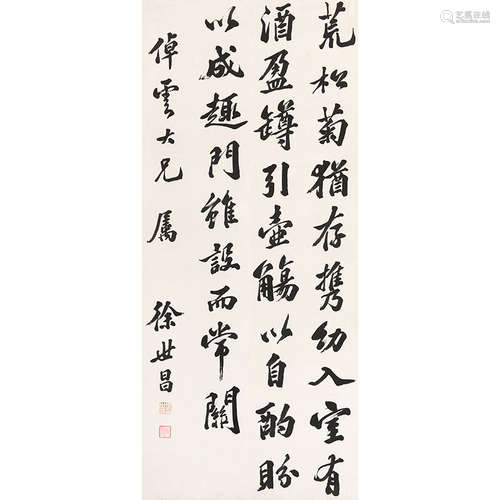 荒松菊猶存携幼入室有
酒盈罇引壺觴以自酌盼
以成趣門雖設而常關
倬雲大兄 属
徐世昌